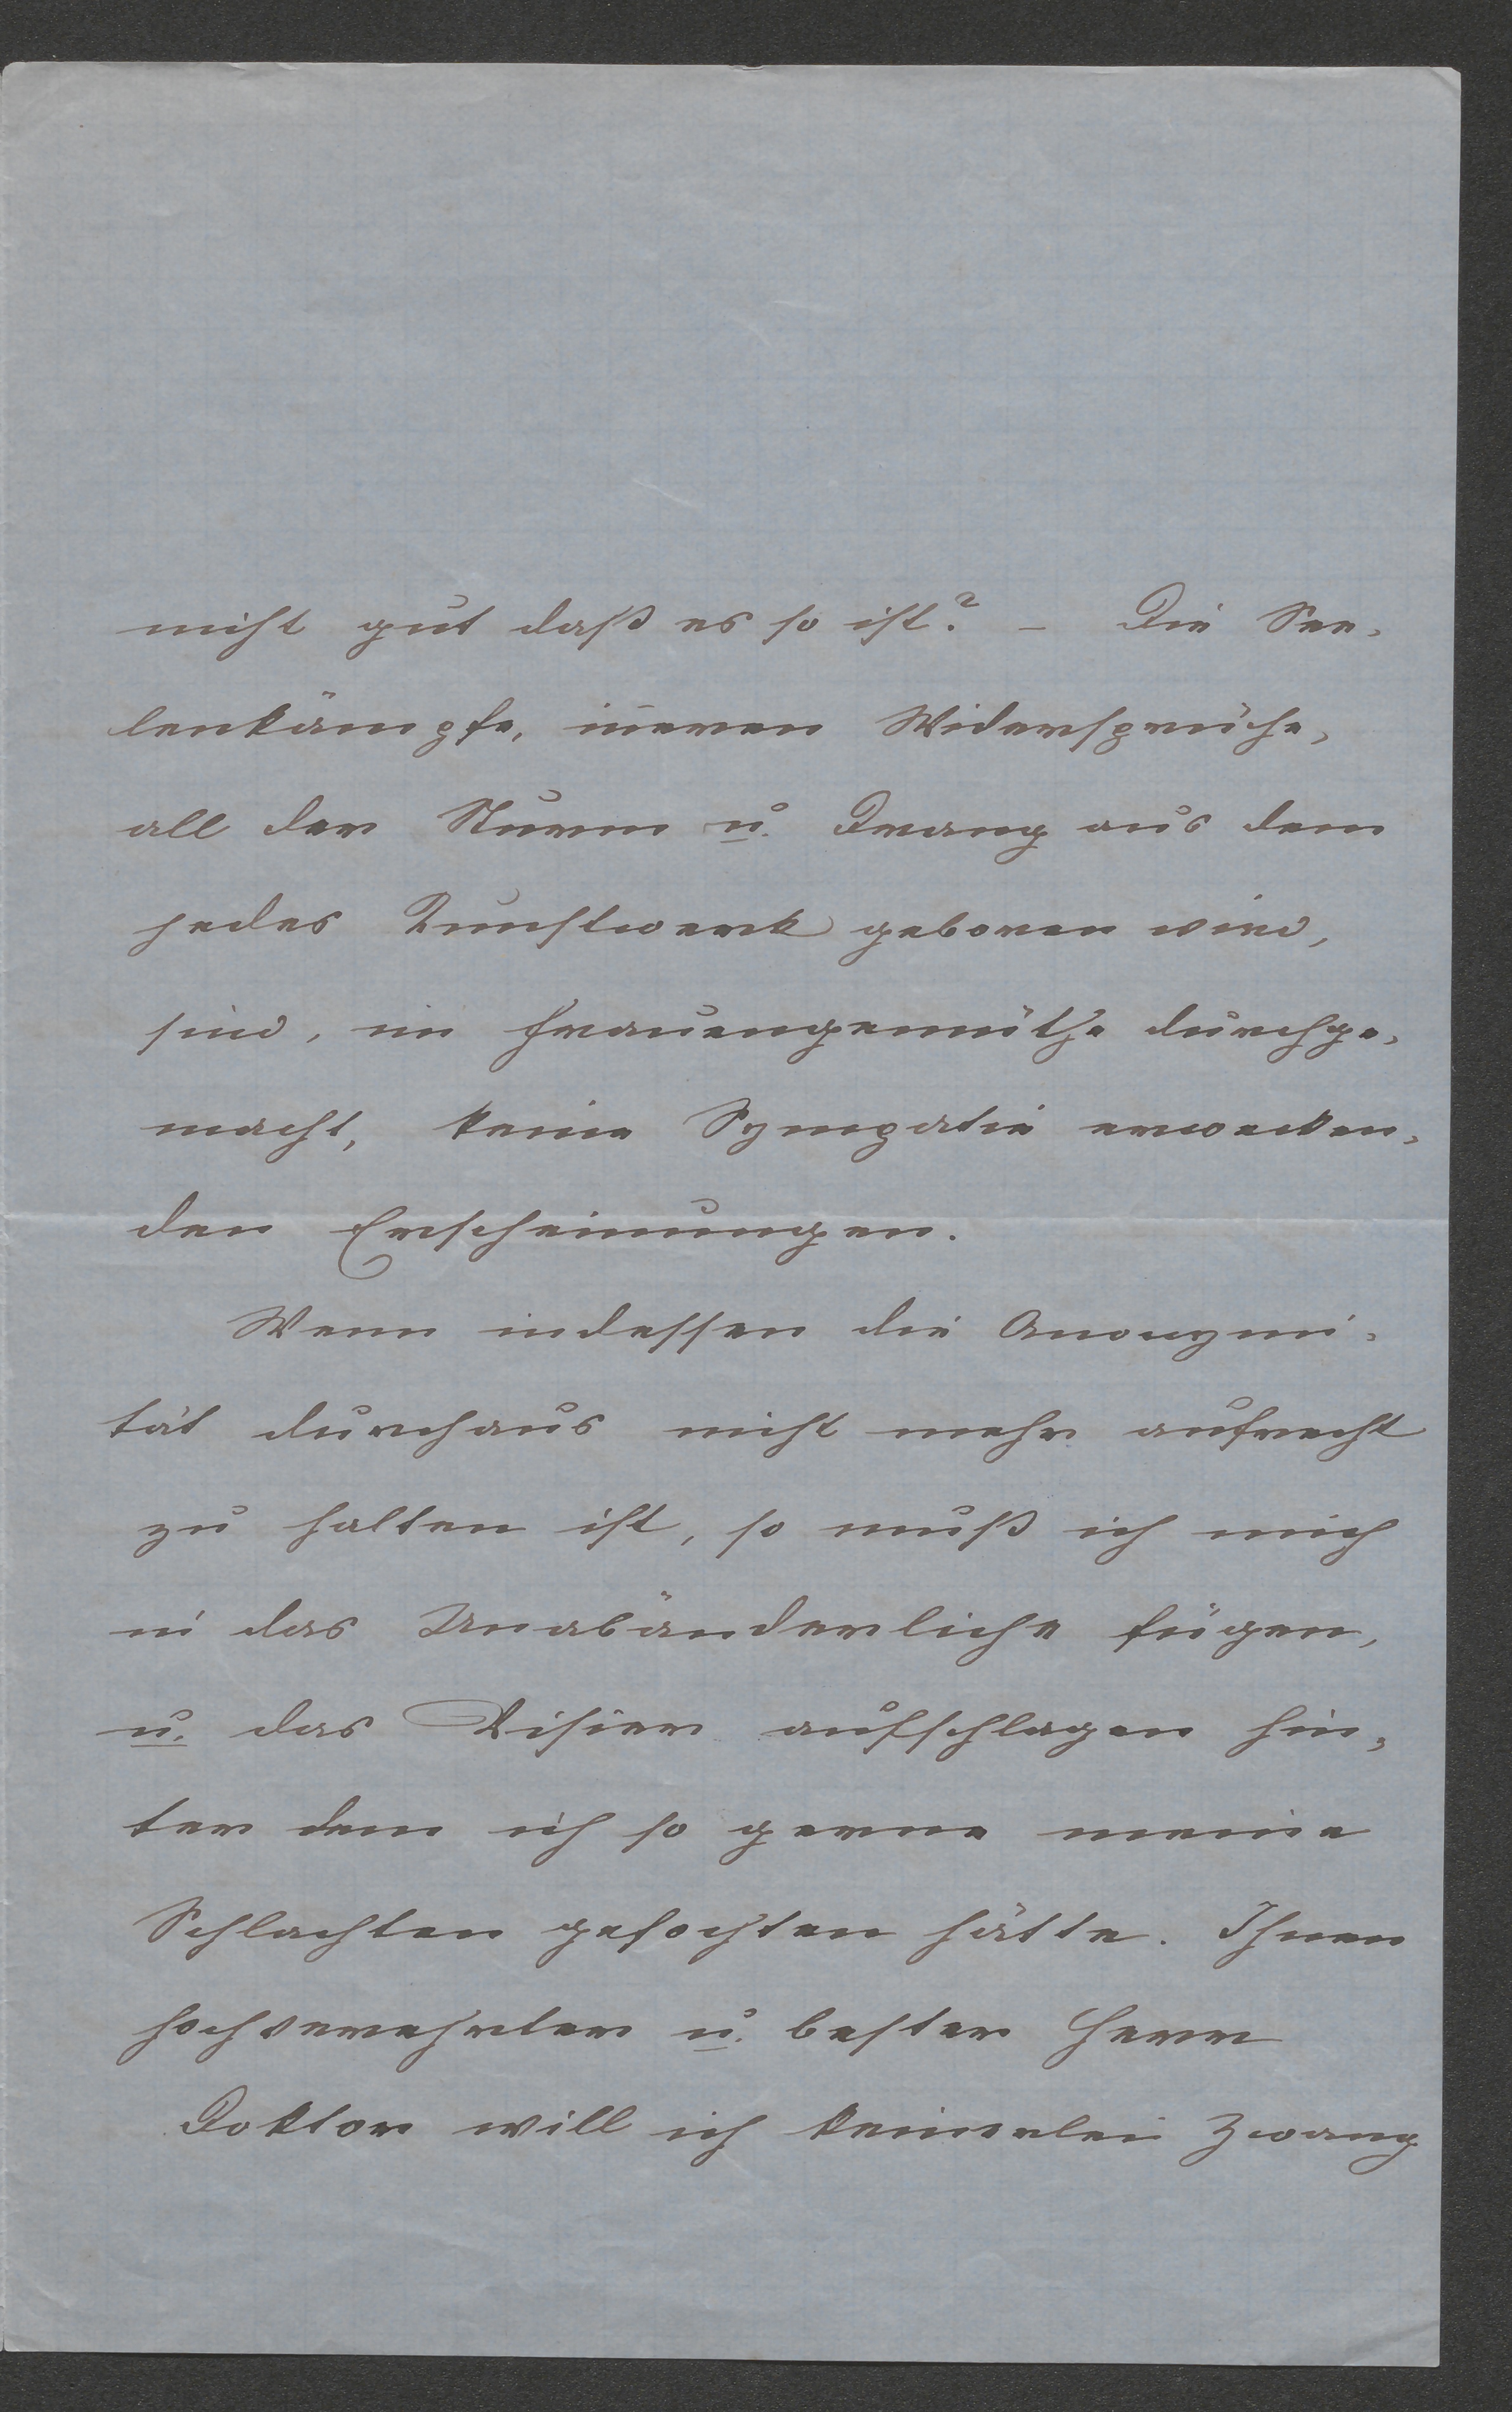 nicht gut daß es so ist? – Die See-
lenkämpfe, inneren Widersprüche,
all der Sturm u. Drang aus dem
jedes Kunstwerk geboren wird,
sind, im Frauengemüthe durchge-
macht, keine Sympatie erwecken-
den Erscheinungen.
Wenn indessen die Anonymi-
tät durchaus nicht mehr aufrecht
zu halten ist, so muß ich mich
in das Unabänderliche fügen,
u. das Visier aufschlagen hin-
ter dem ich so gerne meine
Schlachten gefochten hätte. Ihnen
hochverehrter u. bester Herr
Doktor will ich keinerlei Zwang